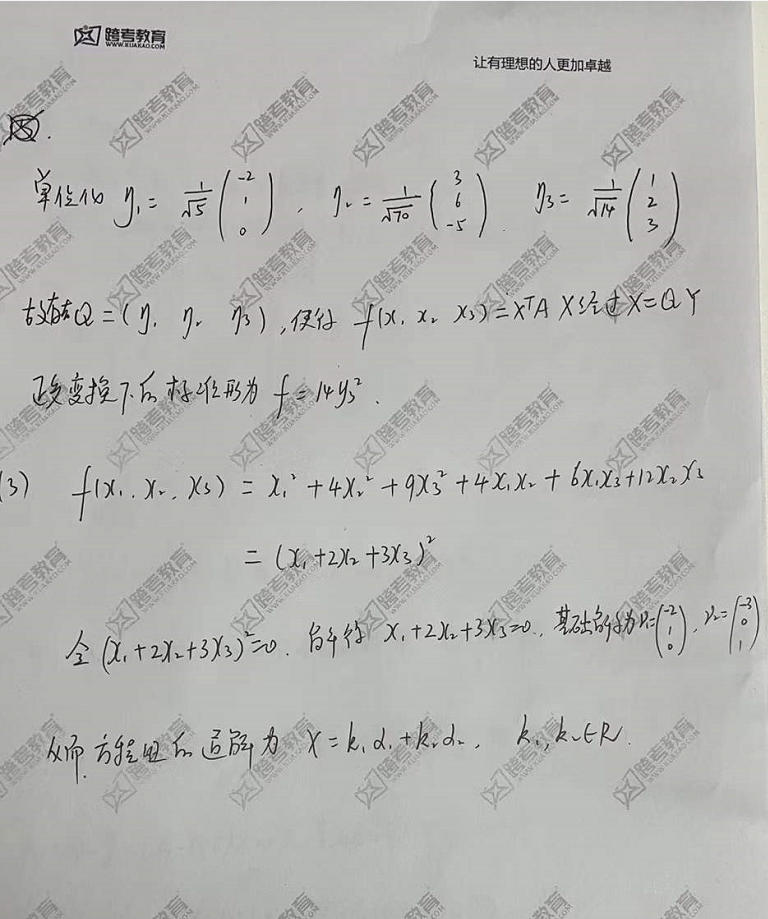 跨考教育
WWW.KUAKAO.COM
让有理想的人更加卓越
15.
单位化 η₁ = 1/√5 (-2 1 0), η₂ = 1/√70 (3 6 -5). η₃ = 1/√14 (1 2 3)
故有 Q = (η₁ η₂ η₃), 使得 f(x₁ x₂ x₃) = XᵀA X 经过 X = Q Y
正交变换下的标准形为 f = 14y₃².
(3) f(x₁, x₂, x₃) = x₁² + 4x₂² + 9x₃² + 4x₁x₂ + 6x₁x₃ + 12x₂x₃
= (x₁ + 2x₂ + 3x₃)²
令 (x₁ + 2x₂ + 3x₃)² = 0. 解得 x₁ + 2x₂ + 3x₃ = 0, 基础解系为 = (-2 1 0), = (-3 0 1)
从而 方程组的通解为 X = k₁α₁ + k₂α₂, k₁, k₂ ∈ R.